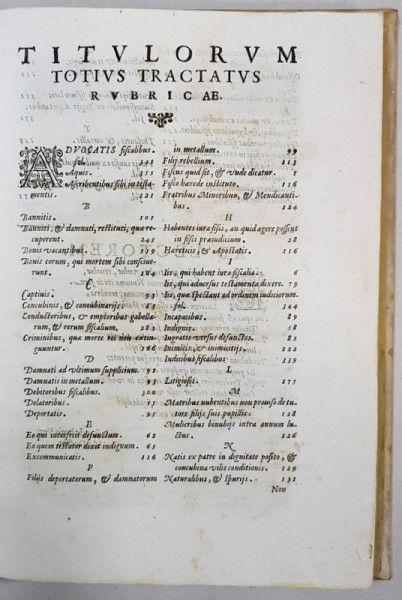 TITVLORVM
TOTIVS TRACTATVS
RVBRICAE.
ADVOCATIS fiscalibus
fol.
Aquis.
Ascribentibus sibi in testa-
mentis. 121
B
Bannitis. 101
Banniti, & damnati, restituti, quæ re-
cuperent.
Bonis vacantibus.
Bonis eorum, qui mortem sibi consciue-
runt.
C
Captiuis.
Concubinis, & concubinarijs.
Conductoribus, & emptoribus gabella-
rum, & rerum fiscalium.
Criminibus, quæ morte rei non extin-
guuntur. 166
D
Damnati ad vltimum supplicium. 93
Damnatis in metallum. 93
Debitoribus fiscalibus. 300
Delatoribus. 15
Deportatis. 95
E
Eo qui interfecit defunctum. 62
Eo quem testator dixit indignum. 65
Excommunicatis. 116
F
Filijs deportatorum, & damnatorum
in metallum. 99
Filij rebellium. 113
Fiscus quid sit, & vnde dicatur. 1
Fisco hærede instituto. 116
Fratribus Minoribus, & Mendicanti-
bus. 124
H
Habentes iura fisci, an quid agere possint
in fisci præiudicium. 28
Hæreticis, & Apostatis. 116
I
Iis, qui habent iura fiscalia. 6
Iis, qui aduersus testamenta dixere. 79
Iis, quæ spectant ad ordinem iudiciorum.
fol.
Incapacibus. 89
Indignis. 58
Ingratis versus defunctos. 81
Inimicis, & inimicitijs. 122
Iudicibus fiscalibus 339
L
Litigiosis. 177
M
Matribus nubentibus non prouiso de tu-
tore filijs suis pupillis. 128
Mulieribus binubis intra annum lu-
ctus. 126
N
Natis ex patre in dignitate posito, &
concubina vilis conditionis. 129
Naturalibus, & spurijs. 131
Non